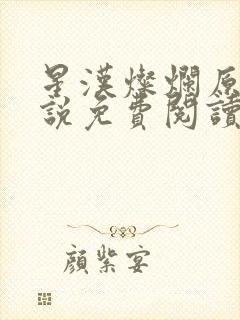 星漢燦爛原
說免費閱讀
顏紫宴